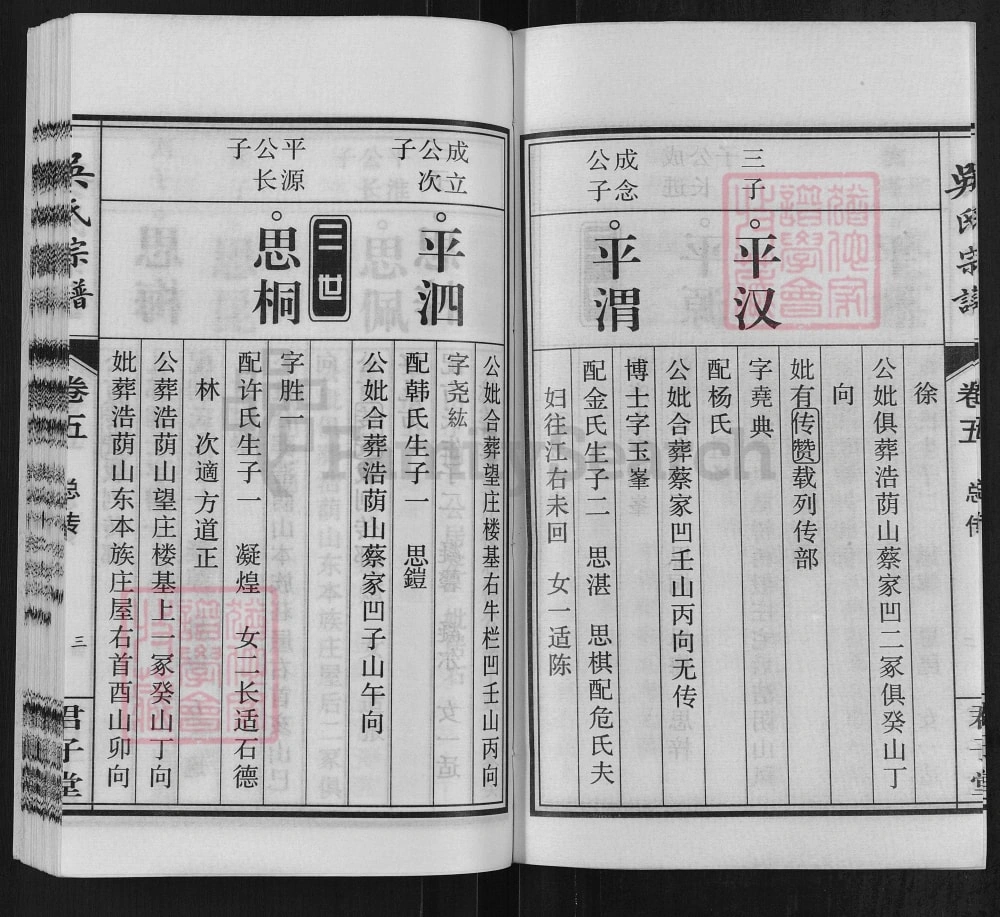 吴氏宗谱
卷五
总传
君子堂
徐
公妣俱葬浩荫山蔡家凹二冢俱癸山丁
向
妣有传赞载列传部
三子
平汉
字堯典
配杨氏
公妣合葬蔡家凹壬山丙向无传
成念公子
平渭
博士字玉峯
配金氏生子二 思湛 思棋配危氏夫
妇往江右未回 女一适陈
公妣合葬望庄楼基右牛栏凹壬山丙向
成立公次子
平泗
字尧紘
配韩氏生子一 思鎧
公妣合葬浩荫山蔡家凹子山午向
三世
平源公长子
思桐
字胜一
配许氏生子一 凝煌 女二长适石德
林 次適方道正
公葬浩荫山望庄楼基上一冢癸山丁向
妣葬浩荫山东本族庄屋右首酉山卯向
吴氏宗谱
卷五
总传
三
君子堂
FamilySearch